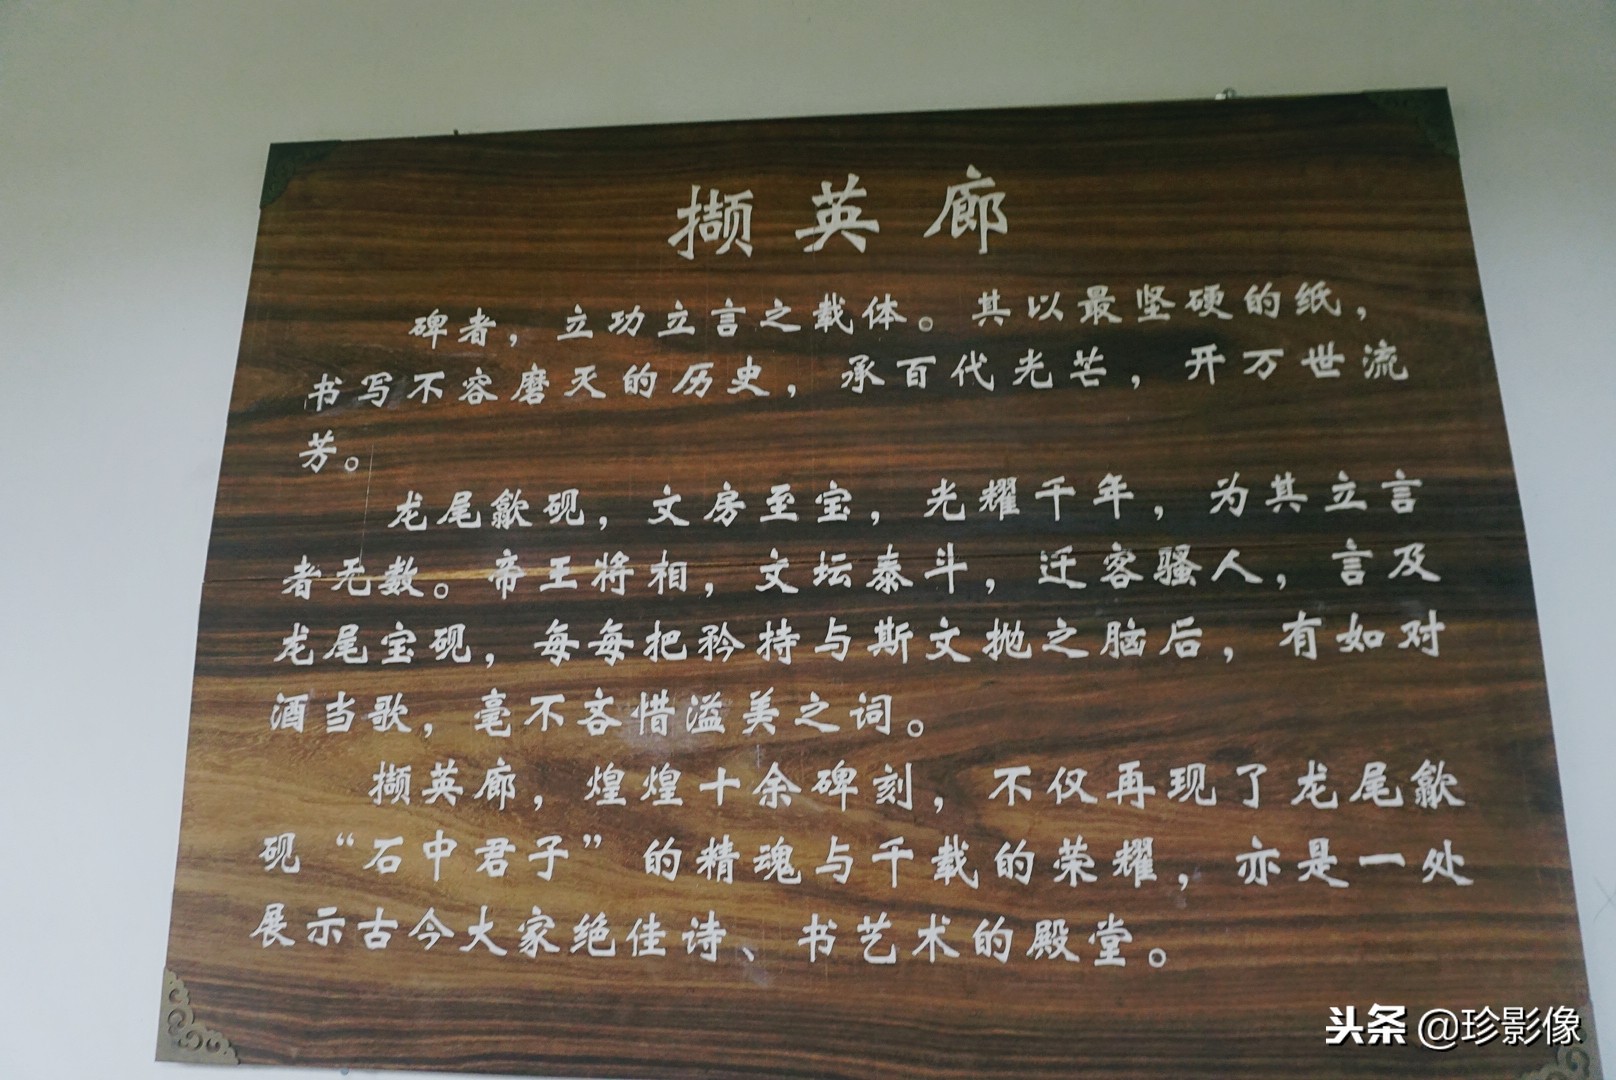 撷英廊
碑者，立功立言之载体。其以最坚硬的纸，
书写不容磨灭的历史，承百代光芒，开万世流
芳。
龙尾歙砚，文房至宝，光耀千年，为其立言
者无数。帝王将相，文坛泰斗，迁客骚人，言及
龙尾宝砚，每每把矜持与斯文抛之脑后，有如对
酒当歌，毫不吝惜溢美之词。
撷英廊，煌煌十余碑刻，不仅再现了龙尾歙
砚“石中君子”的精魂与千载的荣耀，亦是一处
展示古今大家绝佳诗、书艺术的殿堂。
头条 @珍影像